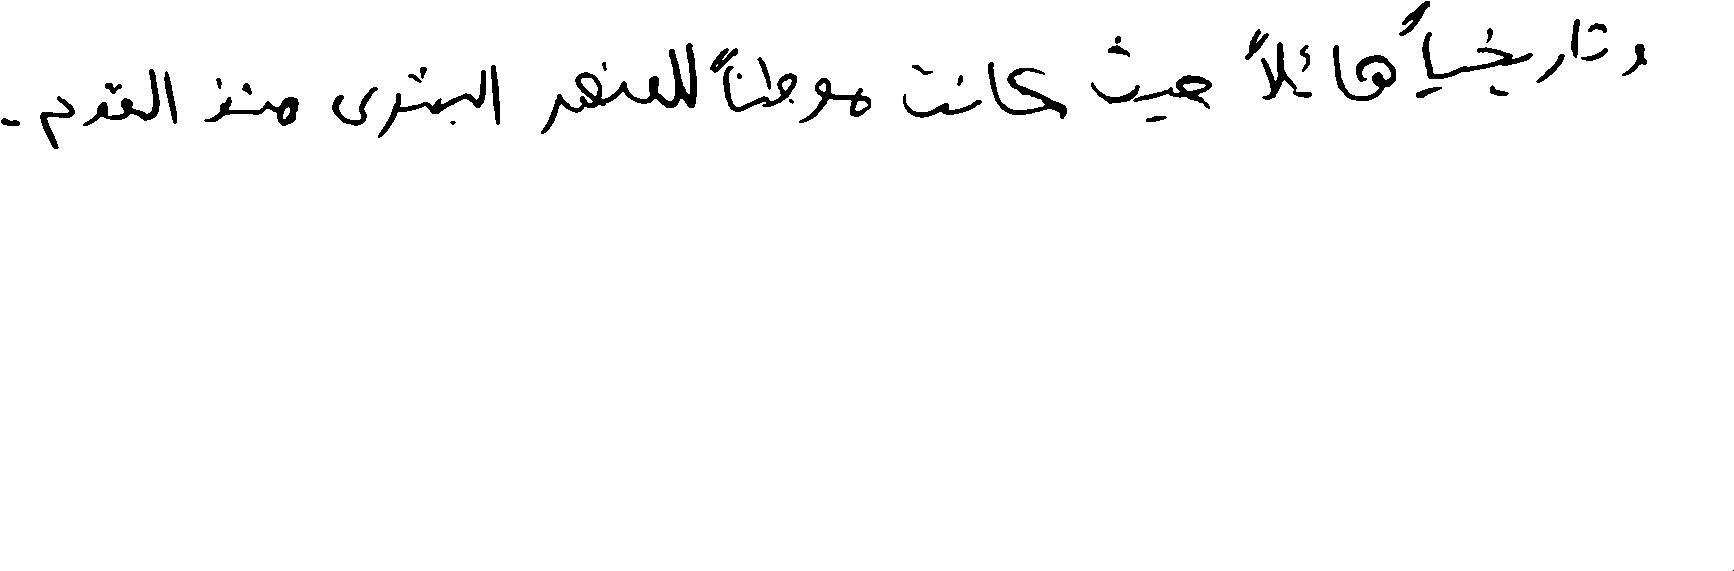 وتاريخياً هائلاً حيث كانت موطناً للعنصر البشرى منذ القدم .